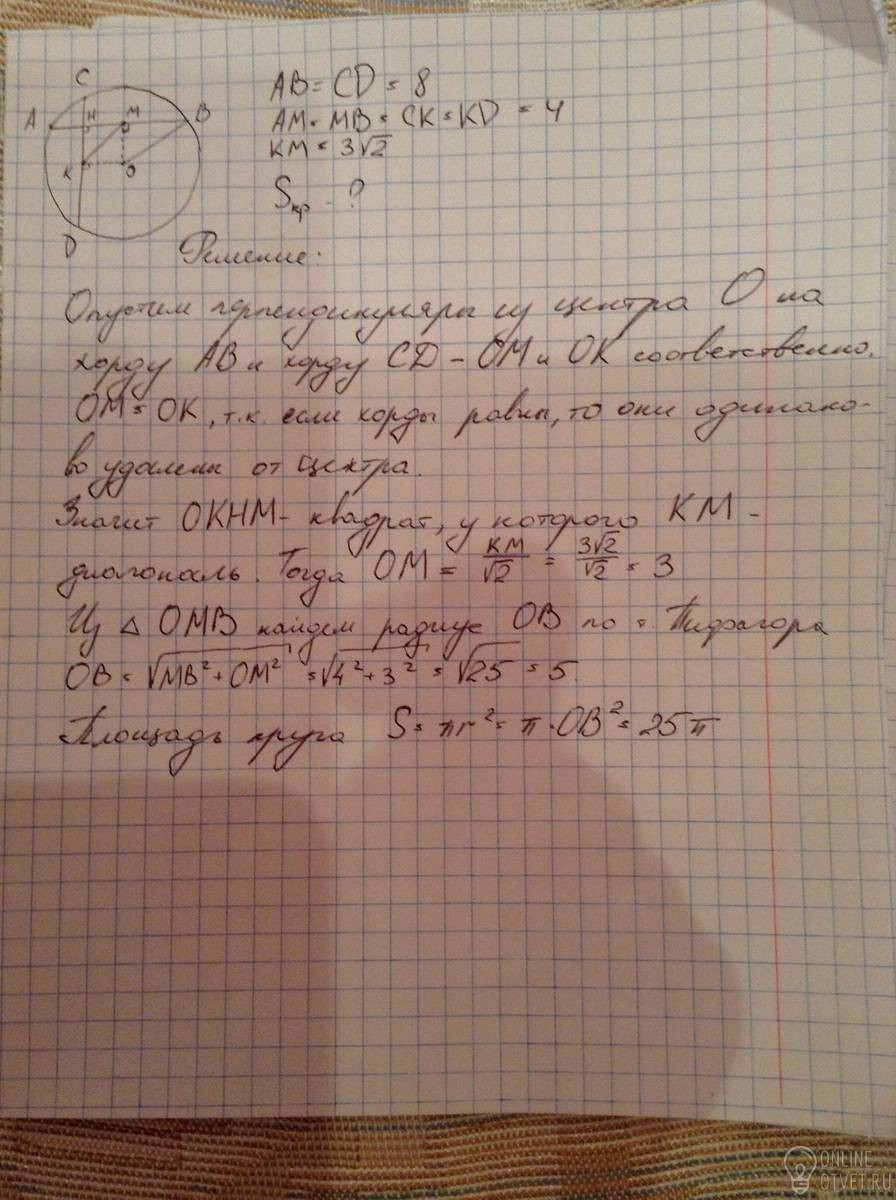 C
A H M B
K O
D
AB = CD = 8
AM = MB = CK = KD = 4
KM = 3√2
Sкр - ?
Решение:
Опустим перпендикуляры из центра O на
хорду AB и хорду CD - OM и OK соответственно.
OM = OK, т.к. если хорды равны, то они одинако-
во удалены от центра.
Значит OKHM - квадрат, у которого KM -
диагональ. Тогда OM = KM/√2 = 3√2/√2 = 3
Из △ OMB найдем радиус OB по т. Пифагора
OB = √MB² + OM² = √4² + 3² = √25 = 5.
Площадь круга S = πr² = π · OB² = 25π
ONLINE
OTVET.RU